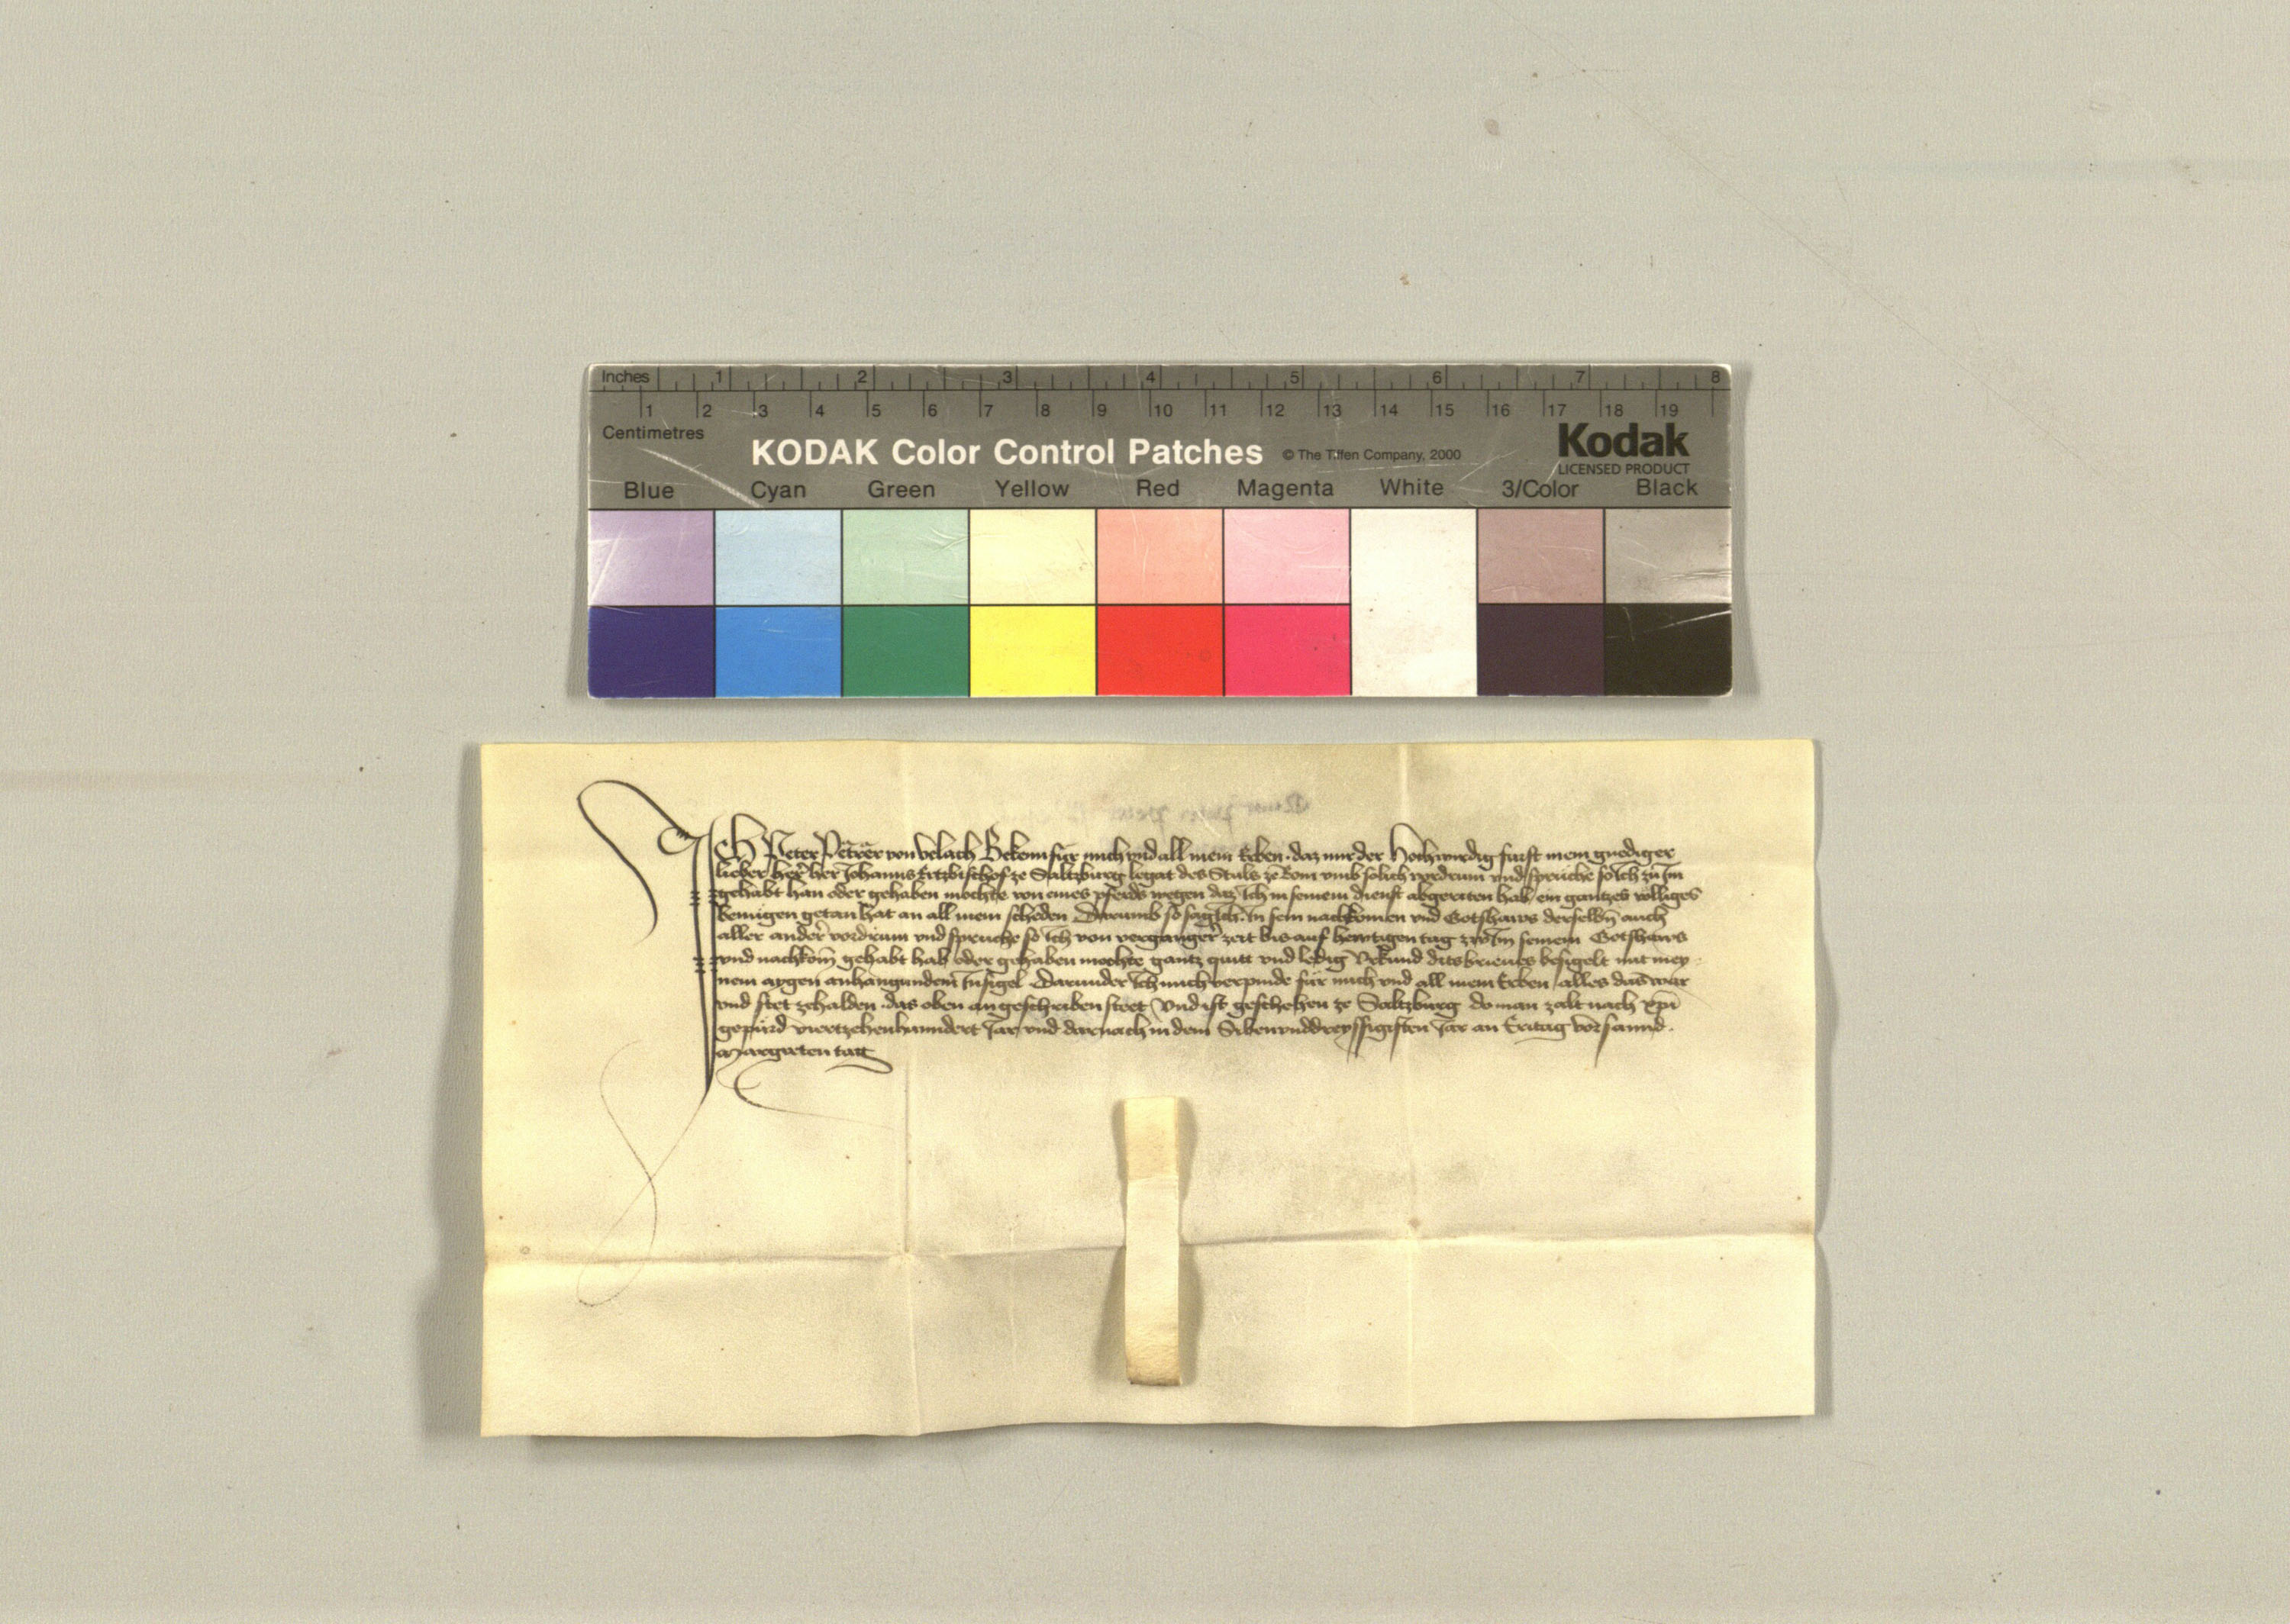 Inches 1 2 3 4 5 6 7 8
1 2 3 4 5 6 7 8 9 10 11 12 13 14 15 16 17 18 19
Centimetres
KODAK Color Control Patches © The Tiffen Company, 2000 Kodak
LICENSED PRODUCT
Blue Cyan Green Yellow Red Magenta White 3/Color Black
Ich Peter von Velach Bekenn für mich vnd all mein Erben . daz mir der Hochwirdig furst mein gnediger
lieber her her Johanns Ertzbischof ze Saltzburg legat des Stuls ze Rom vmb solich vordrum vnd spruche so Ich zu Im
gehabt han oder gehaben mochte von eines pferds wegen daz Ich in seinem dienst abgeriten hab / ein gantzes volliges
benügen getan hat an all mein scheden Darumb so sag Ich In sein nachkomen vnd Gotshaws derselbn̄ auch
aller ander vordrum vnd spruche so Ich von verganger zeit bis auf hewtigen tag zu Im seinem Gotshaws
vnd nachkom̄ gehabt hab oder gehaben mochte gantz quitt vnd ledig Vrkund ditsbrieues besigelt mit mey
nem aygen anhangundem Insigel Darunder Ich mich verpinde für mich vnd all mein Erben / alles das war
vnd stet zehalden . das oben angeschriben steet / Vnd ist geschehen ze Saltzburg do man zalt nach xp̄i
gepurd viertzehenhunndert Jar vnd darnach in dem Sibenvnddreyssigisten Jar an Eritag vor sannd .
Margreten tag